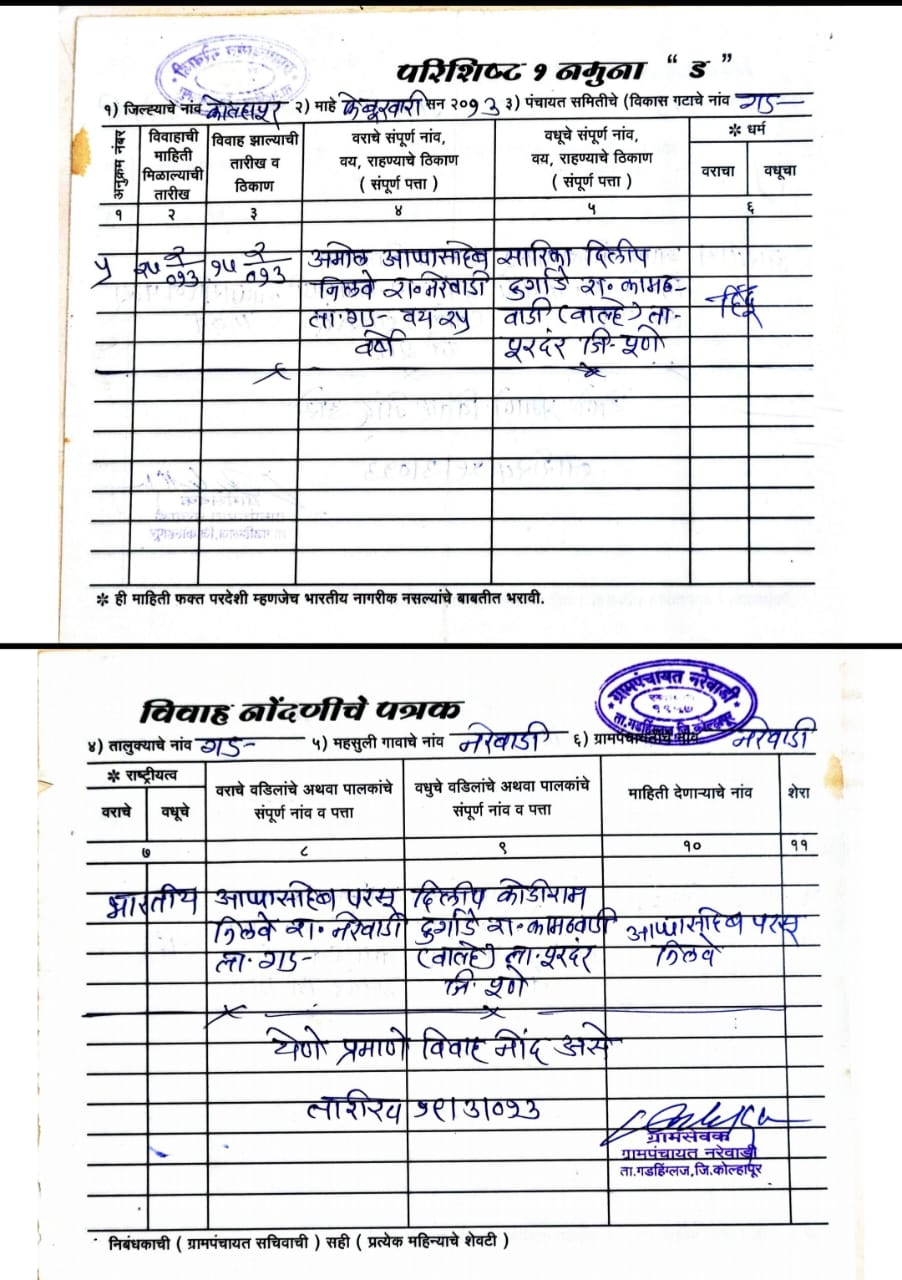 परिशिष्ट १ नमुना “ ड ”
१) जिल्ह्याचे नांव कोल्हापूर २) माहे फेब्रुवारी सन २०१३ ३) पंचायत समितीचे (विकास गटाचे नांव गड—
अनुक्रम नंबर
विवाहाची माहिती मिळाल्याची तारीख
विवाह झाल्याची तारीख व ठिकाण
वराचे संपूर्ण नांव, वय, राहण्याचे ठिकाण ( संपूर्ण पत्ता )
वधूचे संपूर्ण नांव, वय, राहण्याचे ठिकाण ( संपूर्ण पत्ता )
✻ धर्म
वराचा वधूचा
१ २ ३ ४ ५ ६
५ २५/२/०१३ १५/२/०१३ अमोल आप्पासाहेब सारिका दिलीप
निलवे रा. नरेवाडी दुर्गाडे रा. कामठ-
ता. गड- वय २५ वाडी (वाल्हे) ता- हिंदू
वर्षे पुरदंर जि- पूणे
✻ ही माहिती फक्त परदेशी म्हणजेच भारतीय नागरीक नसल्यांचे बाबतीत भरावी.
विवाह नोंदणीचे पत्रक
ग्रामपंचायत नरेवाडी
ता.गडहिंग्लज जि.कोल्हापूर
४) तालुक्याचे नांव गड— ५) महसुली गावाचे नांव नरेवाडी ६) ग्रामपंचायतीचे नांव नरेवाडी
✻ राष्ट्रीयत्व
वराचे वधूचे
वराचे वडिलांचे अथवा पालकांचे संपूर्ण नांव व पत्ता
वधुचे वडिलांचे अथवा पालकांचे संपूर्ण नांव व पत्ता
माहिती देणाऱ्याचे नांव
शेरा
७ ८ ९ १० ११
भारतीय आप्पासाहेब परसू दिलीप कोडीराम
निलवे रा. नरेवाडी दुर्गाडे रा. कामठवाडी आप्पासाहेब परसू
ता. गड- (वाल्हे) ता. पुरदंर निलवे
जि. पूणे
येणे प्रमाणे विवाह नोंद असे
तारीख १९/३/०१३
ग्रामसेवक
ग्रामपंचायत नरेवाडी
ता.गडहिंग्लज,जि.कोल्हापूर
निबंधकाची ( ग्रामपंचायत सचिवाची ) सही ( प्रत्येक महिन्याचे शेवटी )